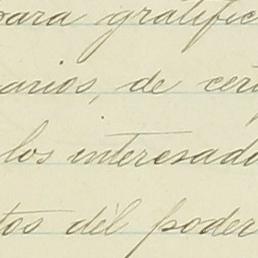 para gratific
arios, de cert
los interesado
tos del poder